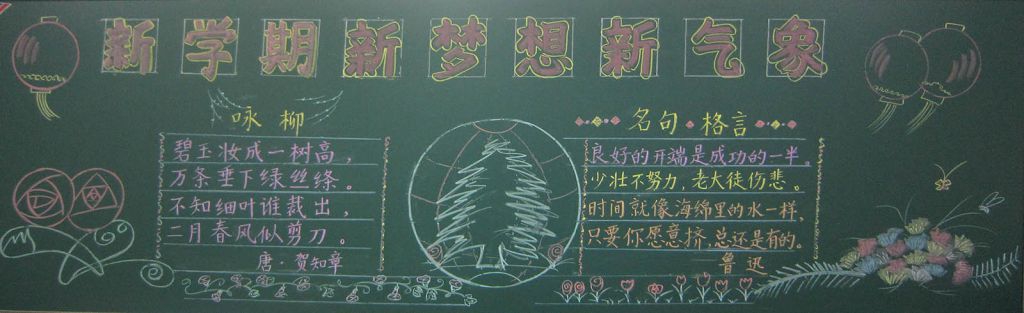 新学期新梦想新气象
咏柳
碧玉妆成一树高，
万条垂下绿丝绦。
不知细叶谁裁出，
二月春风似剪刀。
唐·贺知章
名句·格言
良好的开端是成功的一半。
少壮不努力，老大徒伤悲。
时间就像海绵里的水一样，
只要你愿意挤，总还是有的。
鲁迅